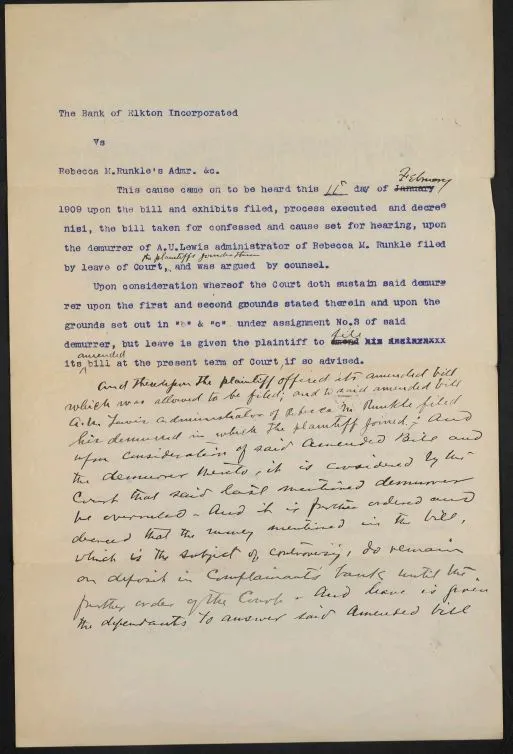 The Bank of Elkton Incorporated
Vs
Rebecca M.Runkle's Admr. &c.
February
This cause came on to be heard this 11" day of January
1909 upon the bill and exhibits filed, process executed and decree
nisi, the bill taken for confessed and cause set for hearing, upon
the demurrer of A.U.Lewis administrator of Rebecca M. Runkle filed
the plaintiffs joinder therein
by leave of Court, and was argued by counsel.
Upon consideration whereof the Court doth sustain said demur-
rer upon the first and second grounds stated therein and upon the
grounds set out in "b" & "c" under assignment No.3 of said
file
demurrer, but leave is given the plaintiff to amend his
amended
its bill at the present term of Court, if so advised.
And thereupon the plaintiff offered its amended bill
which was allowed to be filed; and to said amended bill
A.U. Lewis administrator of Rebecca M Runkle filed
his demurrer in which the plaintiff joined; And
upon consideration of said Amended Bill and
the demurrer thereto, it is considered by the
Court that said last mentioned demurrer
be overruled - And it is further ordered and
decreed that the money mentioned in the bill,
which is the subject of controversy, do remain
on deposit in Complainants bank until the
further order of the Court - And leave is given
the defendants to answer said Amended bill